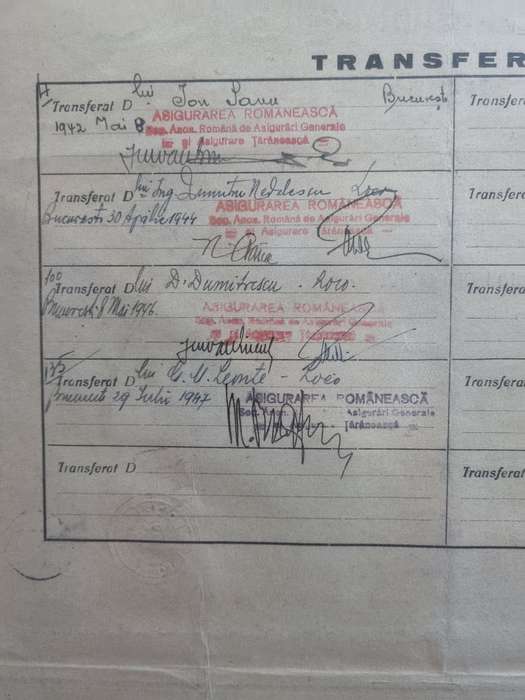 TRANSFER
Transferat D lui Ion Banu București
1942 Mai 8
ASIGURAREA ROMÂNEASCĂ
Soc. Anon. Română de Asigurări Generale
și Asigurare Țărănească
Transferat D lui Ing Dumitru Nedelescu Loco
București 30 Aprilie 1944
ASIGURAREA ROMÂNEASCĂ
Soc. Anon. Română de Asigurări Generale
și Asigurare Țărănească
100
Transferat D lui D. Dumitrescu - Loco.
București 8 Mai 1946
ASIGURAREA ROMÂNEASCĂ
Soc. Anon. Română de Asigurări Generale
Transferat D lui G. M. Leonte - Loco
București 29 Iulie 1947
ASIGURAREA ROMÂNEASCĂ
Soc. Anon. Asigurări Generale
Țărănească
Transferat D
Transfera
Transfera
Transfera
Transfera
Transfera